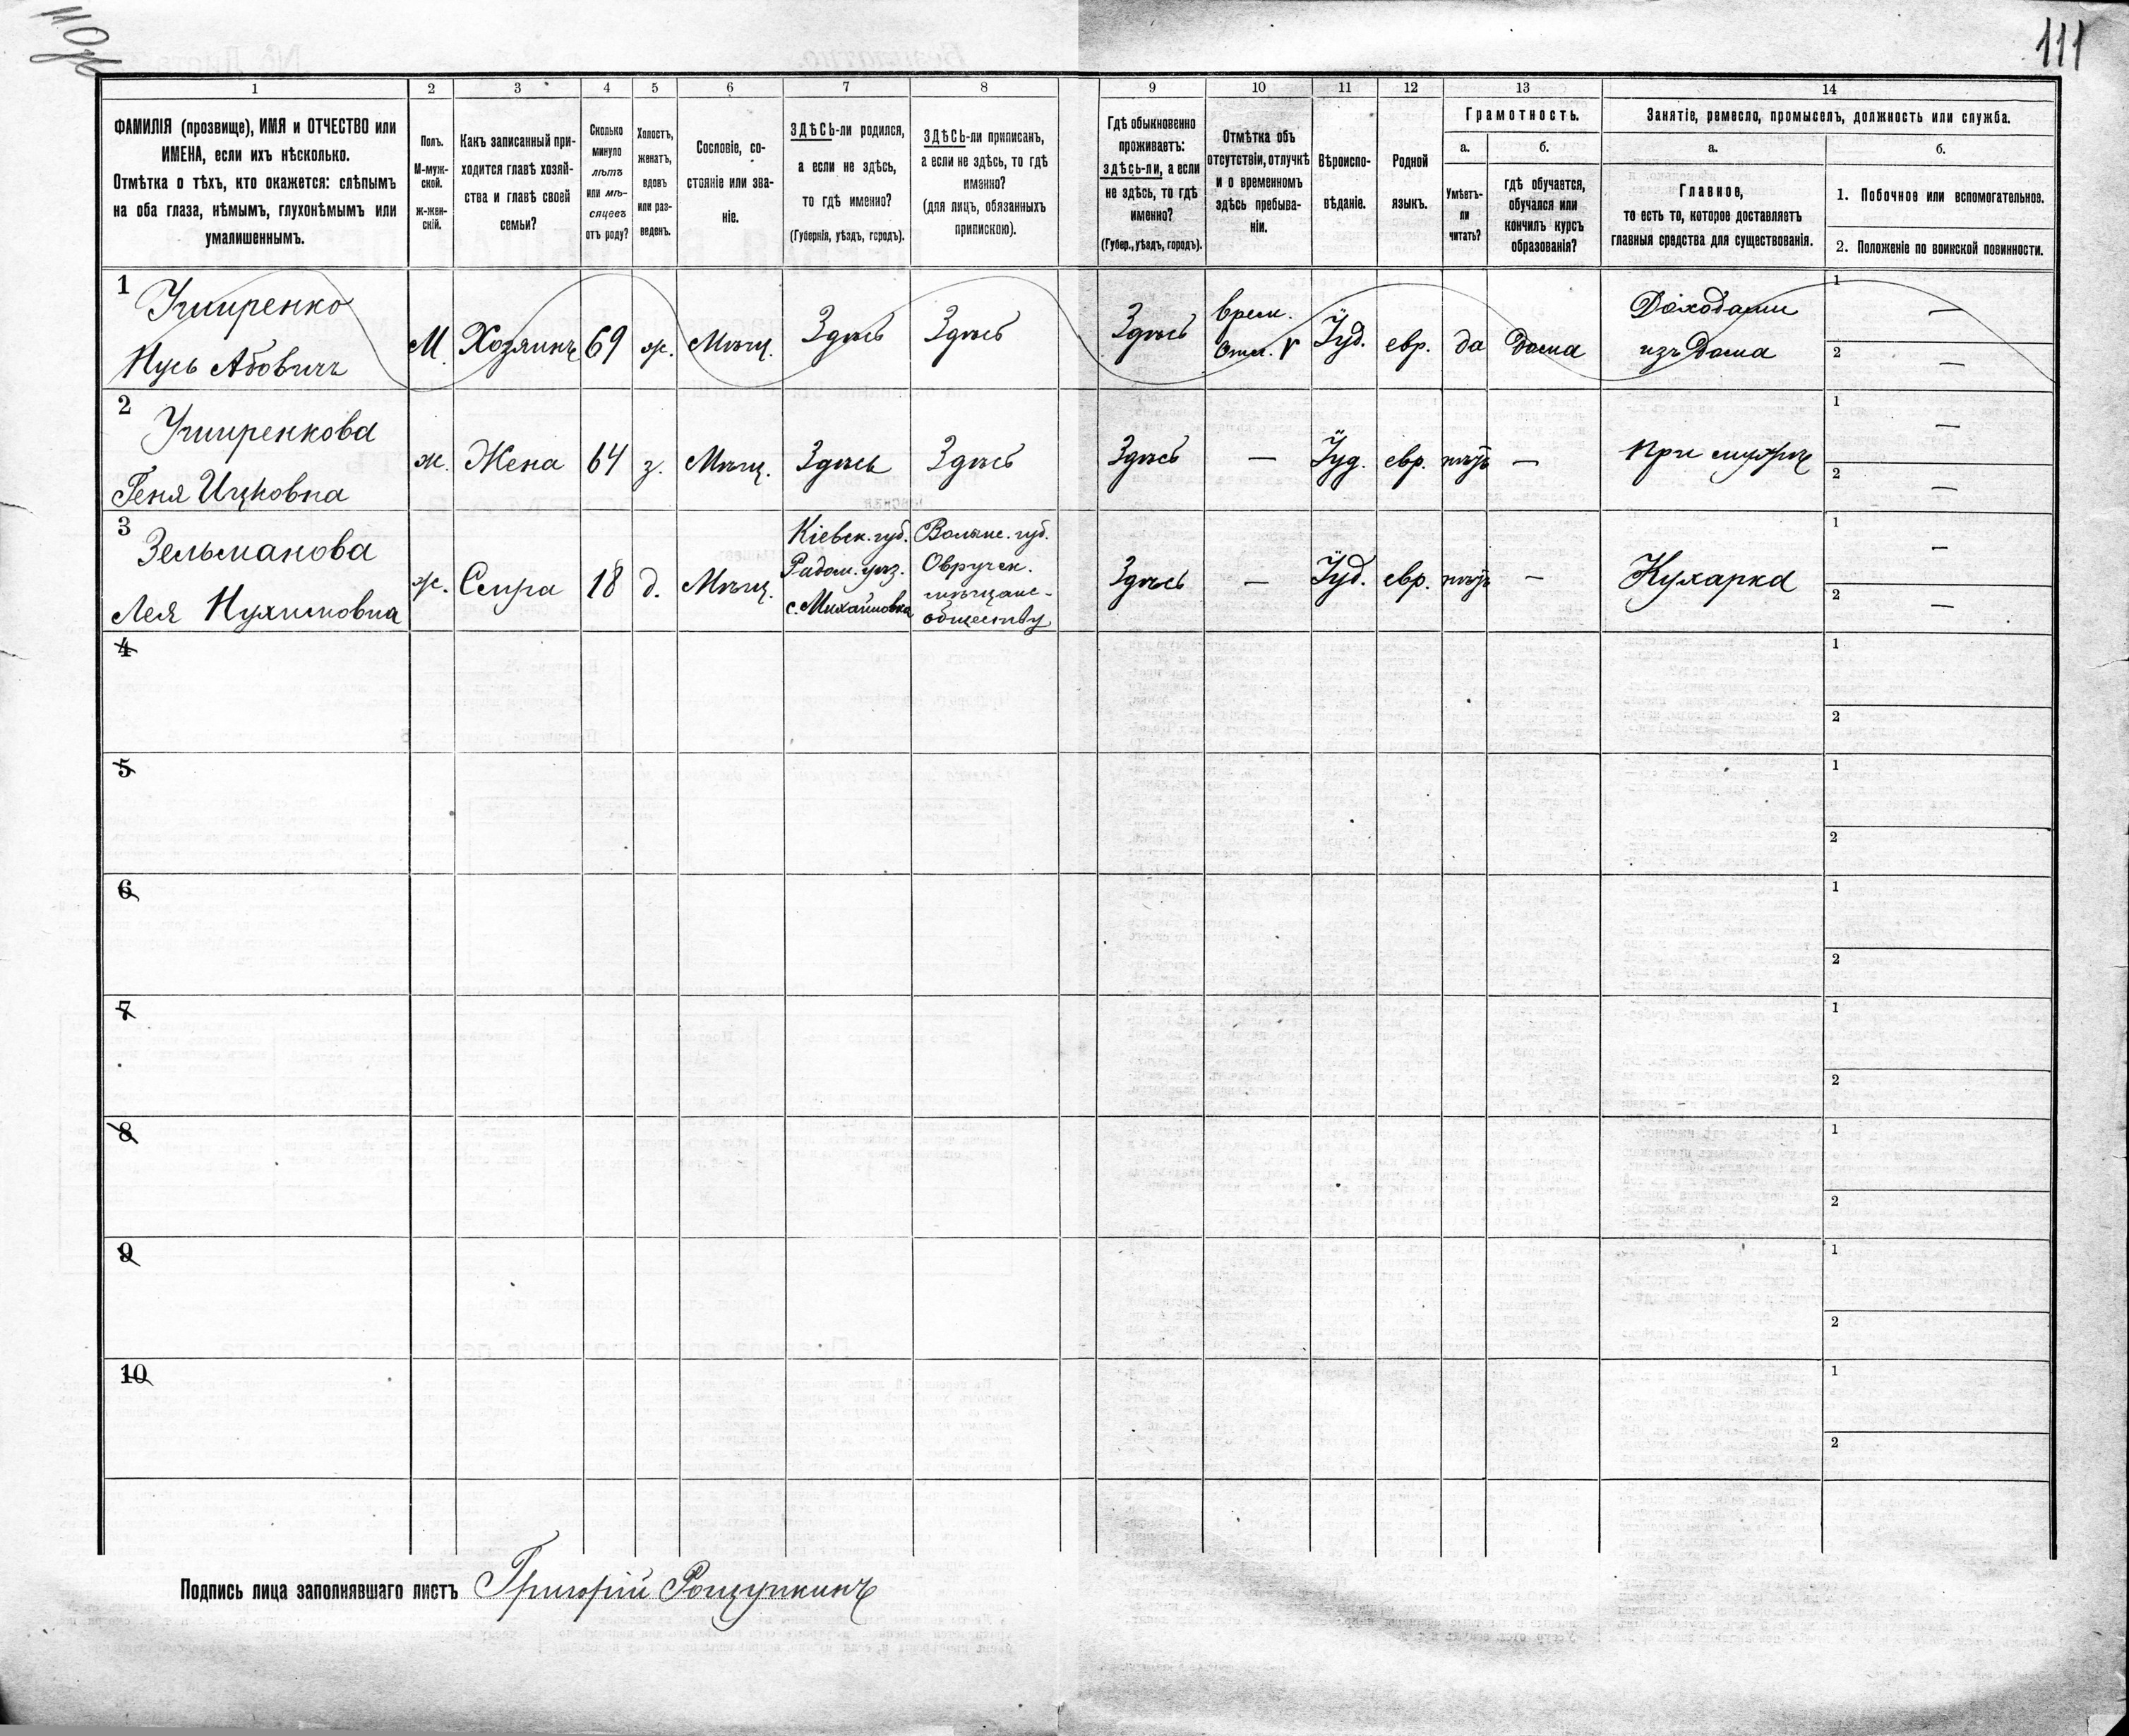 110об
111
1 2 3 4 5 6 7 8 9 10 11 12 13 14
ФАМИЛІЯ (прозвище), ИМЯ и ОТЧЕСТВО или
ИМЕНА, если ихъ нѣсколько.
Отмѣтка о тѣхъ, кто окажется: слѣпымъ
на оба глаза, нѣмымъ, глухонѣмымъ или
умалишеннымъ.
Полъ.
М-муж-
ской.
ж-жен-
скій.
Какъ записанный при-
ходится главѣ хозяй-
ства и главѣ своей
семьи?
Сколько
минуло
лѣтъ
или мѣ-
сяцевъ
отъ роду?
Холостъ,
женатъ,
вдовъ
или раз-
веденъ.
Сословіе, со-
стояніе или зва-
ніе.
ЗДѢСЬ-ли родился,
а если не здѣсь,
то гдѣ именно?
(Губернія, уѣздъ, городъ).
ЗДѢСЬ-ли приписанъ,
а если не здѣсь, то гдѣ
именно?
(для лицъ, обязанныхъ
припискою).
Гдѣ обыкновенно
проживаетъ:
здѣсь-ли, а если
не здѣсь, то гдѣ
именно?
(Губер., уѣздъ, городъ).
Отмѣтка объ
отсутствіи, отлучкѣ
и о временномъ
здѣсь пребыва-
ніи.
Вѣроиспо-
вѣданіе.
Родной
языкъ.
Грамотность.
а.
Умѣетъ-
ли
читать?
б.
гдѣ обучается,
обучался или
кончилъ курсъ
образованія?
Занятіе, ремесло, промыселъ, должность или служба.
а.
Главное,
то есть то, которое доставляетъ
главныя средства для существованія.
б.
1. Побочное или вспомогательное.
2. Положеніе по воинской повинности.
1
Нусь Абовичъ
М. Хозяинъ 69 ж. Мѣщ. Здѣсь Здѣсь Здѣсь
врем.
Отл. V
Іуд. евр. да Дома
Доходами
изъ Дома
1 —
2 —
2
Геня Ицковна
ж. Жена 64 з. Мѣщ. Здѣсь Здѣсь Здѣсь — Іуд. евр. нѣтъ — При мужѣ
1 —
2 —
3
Зельманова
Лея Нухимовна
ж. 18 д. Мѣщ.
Кіевск. губ.
Радом. уѣз.
с. Михайловка
Волынс. губ.
Овручск.
мѣщанс-
обществу
Здѣсь — Іуд. евр. нѣтъ — Кухарка
1 —
2 —
4 1
2
5 1
2
6 1
2
7 1
2
8 1
2
9 1
2
10 1
2
Подпись лица заполнявшаго листъ Григорій Рощупкинъ